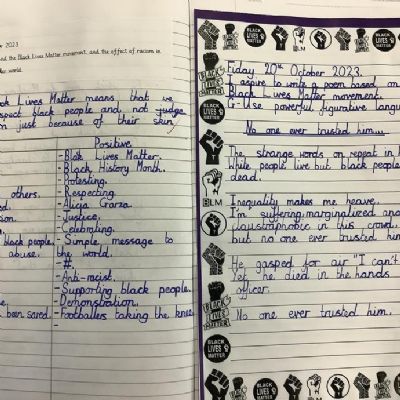 2023
and the Black Lives Matter movement, and the effect of racism in
world.
Lives Matter means that we
respect black people and not judge
just because of their skin
Positive
- Black Lives Matter.
- Black History Month.
- Protesting.
others. - Respecting
- Alicia Garza.
- Justice.
- Celebrating.
black people. - Simple message to
abuse. the world.
- #
- Anti-racist.
- Supporting black people.
- Demonstration.
been sared. - Footballers taking the knee
-
BLACK LIVES MATTER
BLM
Friday 20th October 2023.
I aspire to write a poem based on
Black Lives Matter movement.
G- Use powerful figurative
No one ever trusted him...
The strange words on repeat in
While people live but black people
dead.
Inequality makes me heave.
I'm suffering, marginalized and
claustraphobic in this crowd.
but no one ever trusted him
He gasped for air "I can't
let me, died in the hands
officer.
No one ever trusted him.